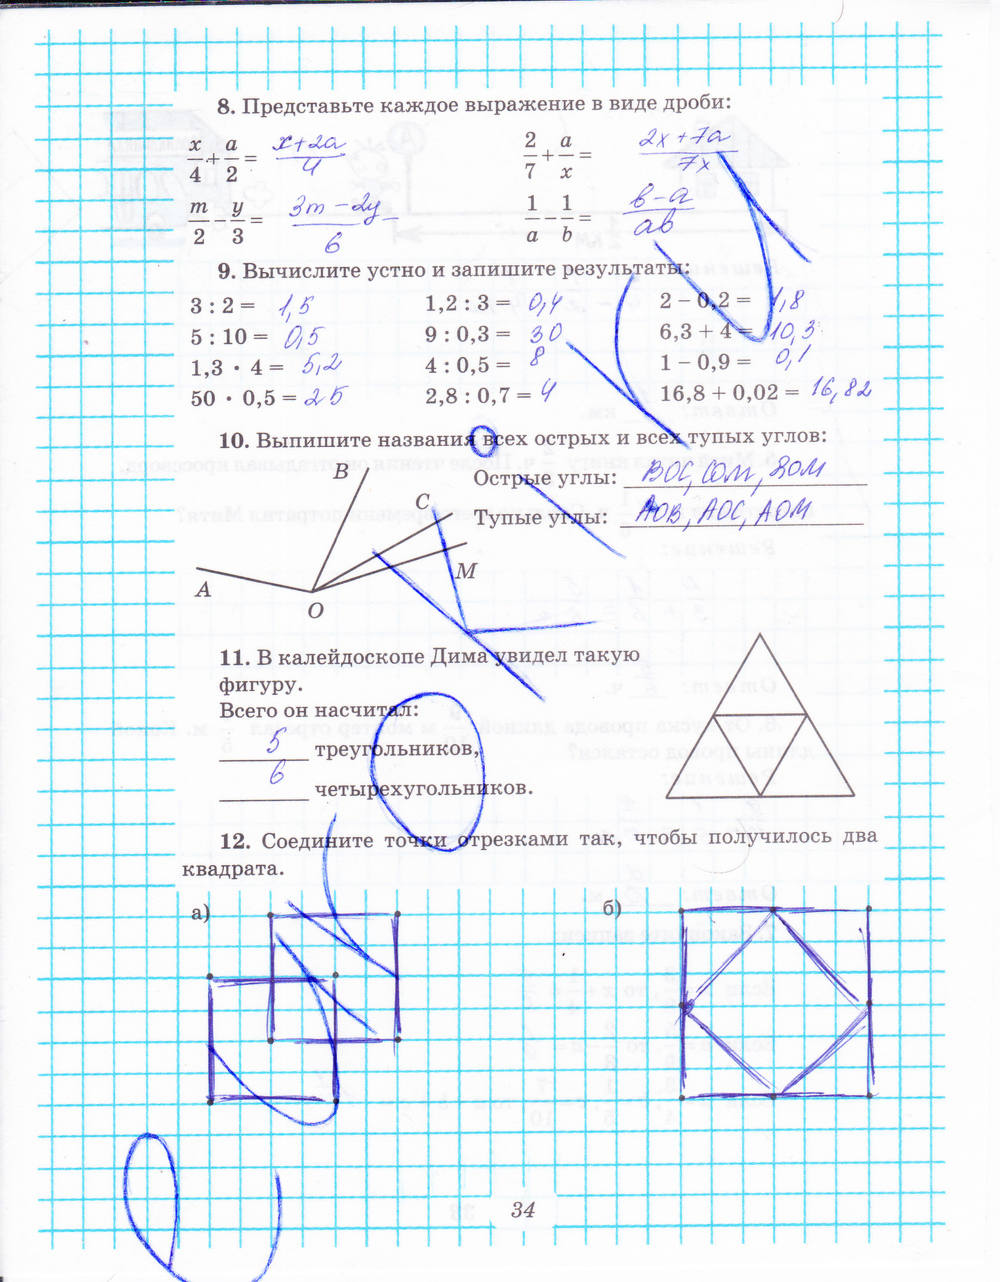 8. Представьте каждое выражение в виде дроби:
x/4 + a/2 = x+2a/4 2/7 + a/x = 2x+7a/7x
m/2 - y/3 = 3m-2y/6 1/a - 1/b = b-a/ab
9. Вычислите устно и запишите результаты:
3 : 2 = 1,5 1,2 : 3 = 0,4 2 – 0,2 = 1,8
5 : 10 = 0,5 9 : 0,3 = 30 6,3 + 4 = 10,3
1,3 · 4 = 5,2 4 : 0,5 = 8 1 – 0,9 = 0,1
50 · 0,5 = 25 2,8 : 0,7 = 4 16,8 + 0,02 = 16,82
10. Выпишите названия всех острых и всех тупых углов:
B
C
M
A
O
Острые углы: BOC, COM, BOM
Тупые углы: AOB, AOC, AOM
11. В калейдоскопе Дима увидел такую
фигуру.
Всего он насчитал:
5 треугольников,
6 четырехугольников.
12. Соедините точки отрезками так, чтобы получилось два
квадрата.
а) б)
34